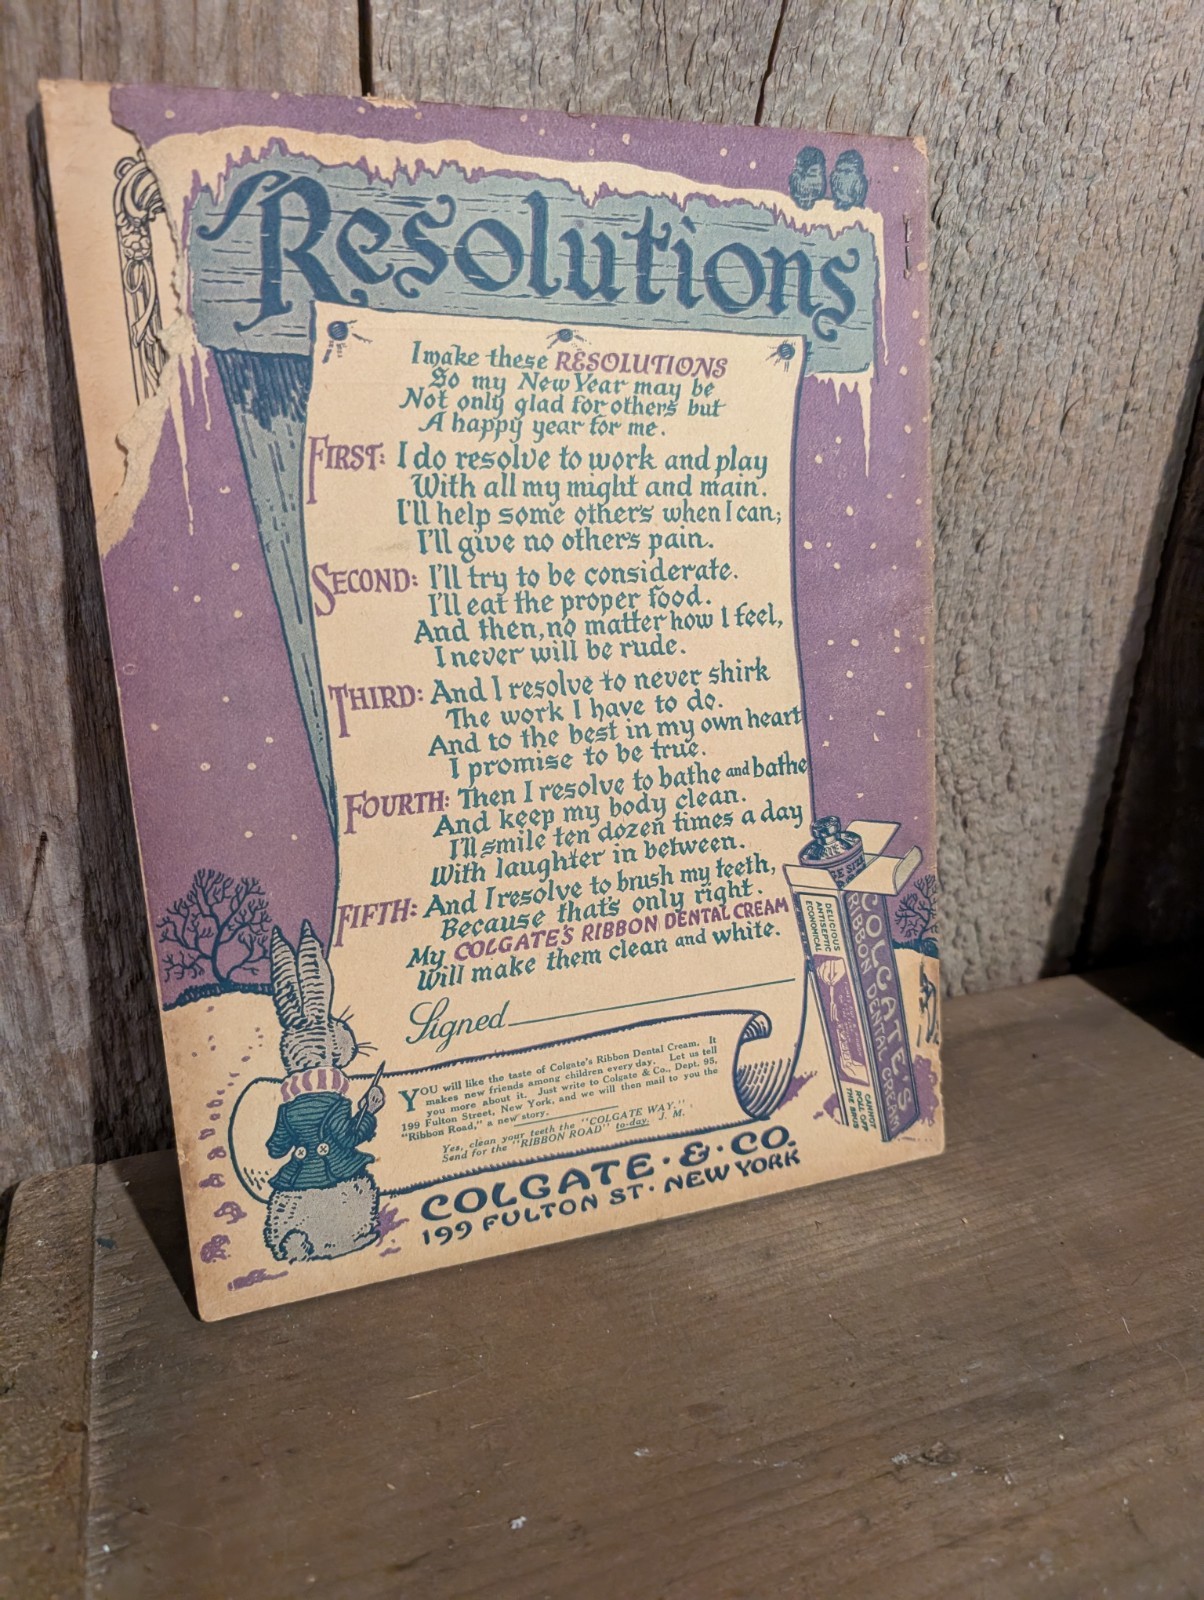 Resolutions
I make these RESOLUTIONS
So my New Year may be
Not only glad for others but
A happy year for me.
FIRST: I do resolve to work and play
With all my might and main.
I'll help some others when I can;
I'll give no others pain.
SECOND: I'll try to be considerate.
I'll eat the proper food.
And then, no matter how I feel,
I never will be rude.
THIRD: And I resolve to never shirk
The work I have to do.
And to the best in my own heart
I promise to be true.
FOURTH: Then I resolve to bathe and bathe
And keep my body clean.
I'll smile ten dozen times a day
With laughter in between.
FIFTH: And I resolve to brush my teeth,
Because that's only right.
My COLGATE'S RIBBON DENTAL CREAM
Will make them clean and white.
Signed
YOU will like the taste of Colgate's Ribbon Dental Cream. It
makes new friends among children every day. Let us tell
you more about it. Just write to Colgate & Co., Dept. 95,
199 Fulton Street, New York, and we will then mail to you the
"Ribbon Road," a new story.
Yes, clean your teeth the "COLGATE WAY,"
Send for the "RIBBON ROAD" to-day. J. M.
COLGATE · & · CO.
199 FULTON ST · NEW YORK
SIZE
DELICIOUS
ANTISEPTIC
ECONOMICAL
COLGATE'S
RIBBON DENTAL CREAM
CANNOT
ROLL OFF
THE BRUSH